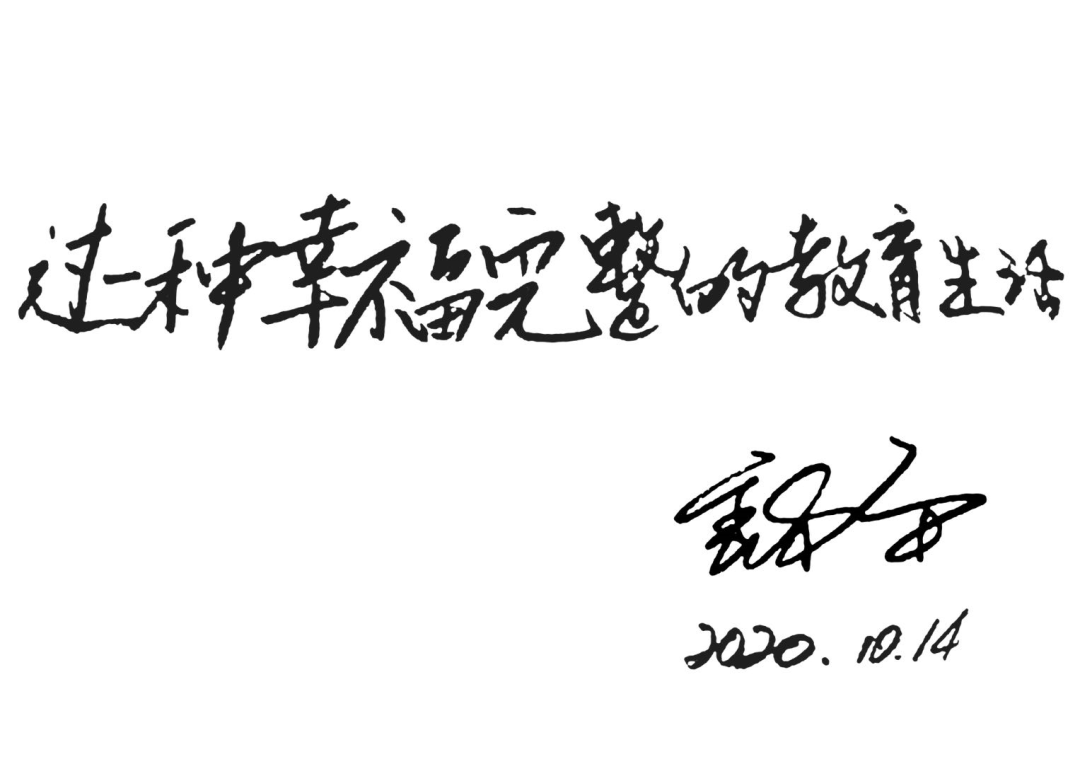 过一种幸福完整的教育生活
2020.10.14